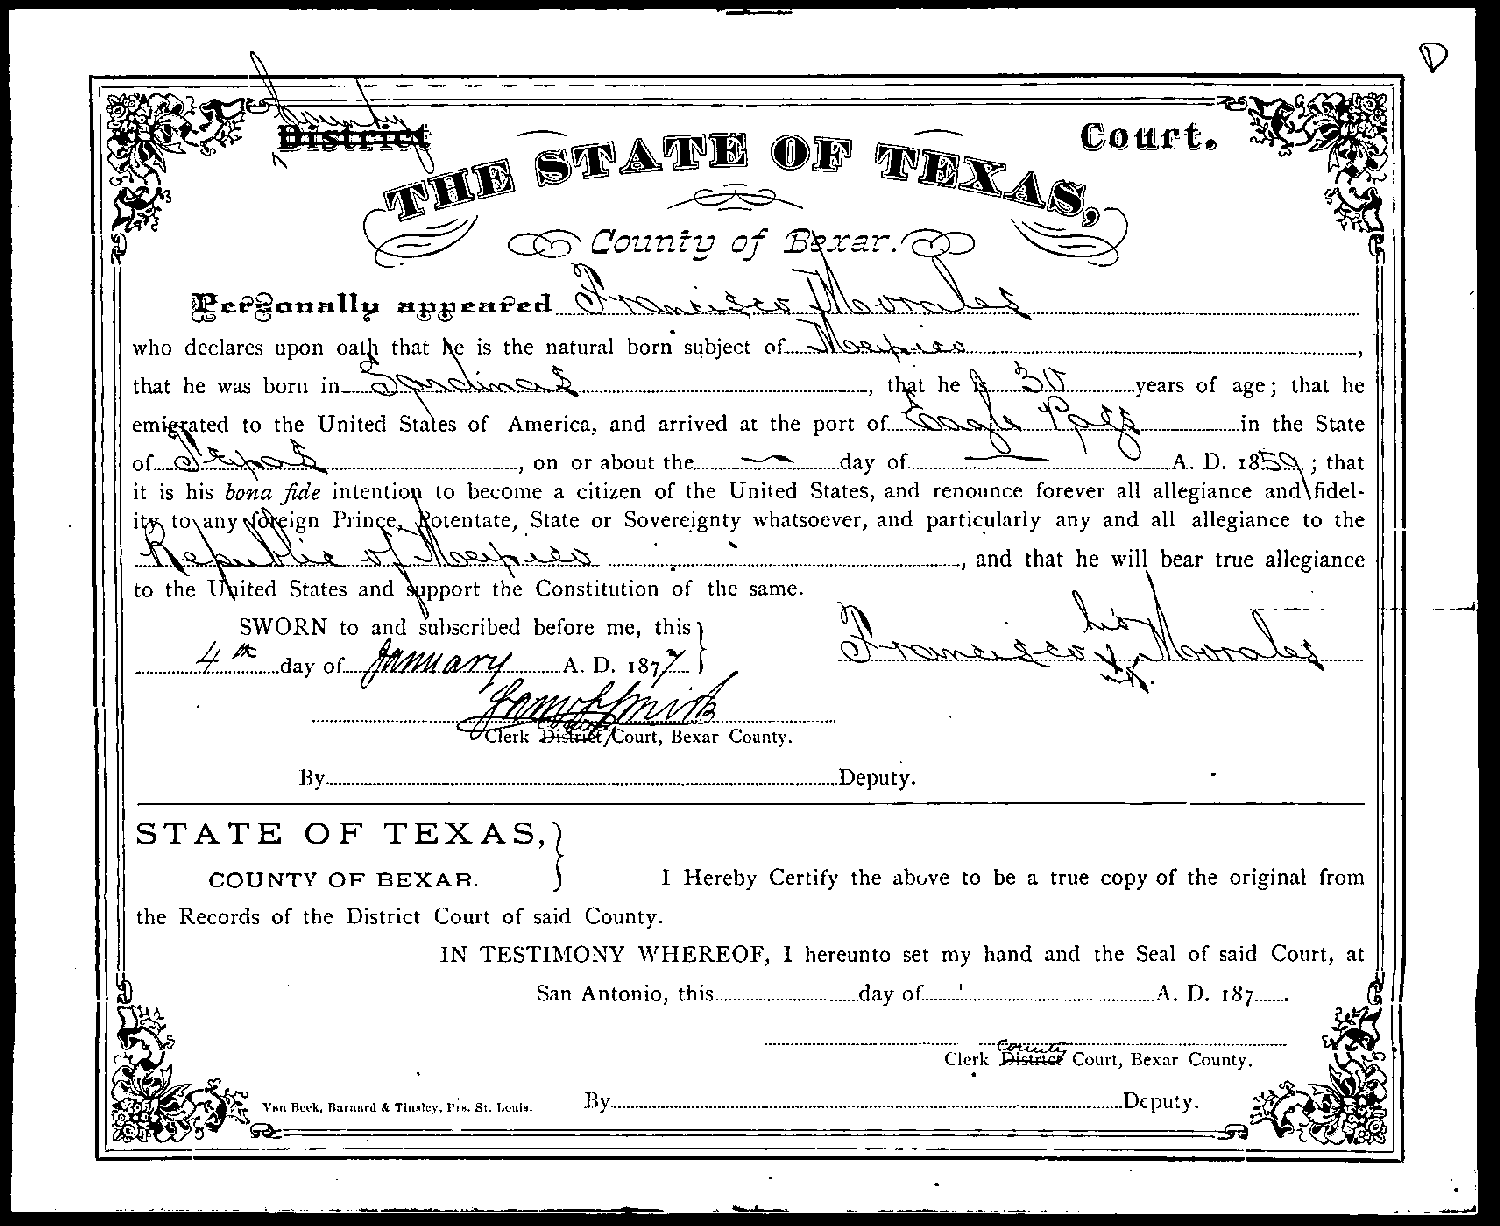 D
County
District Court.
THE STATE OF TEXAS,
County of Bexar.
Personally appeared Francisco Morales
who declares upon oath that he is the natural born subject of Mexico,
that he was born in Sardinas, that he is 30 years of age; that he
emigrated to the United States of America, and arrived at the port of Eagle Pass in the State
of Texas, on or about the — day of — A. D. 1859; that
it is his bona fide intention to become a citizen of the United States, and renounce forever all allegiance and fidel-
ity to any foreign Prince, Potentate, State or Sovereignty whatsoever, and particularly any and all allegiance to the
Republic of Mexico, and that he will bear true allegiance
to the United States and support the Constitution of the same.
SWORN to and subscribed before me, this
4th day of January A. D. 1877
his
Francisco X Morales
Smith
Clerk District Court, Bexar County.
By Deputy.
STATE OF TEXAS,
COUNTY OF BEXAR.
I Hereby Certify the above to be a true copy of the original from
the Records of the District Court of said County.
IN TESTIMONY WHEREOF, I hereunto set my hand and the Seal of said Court, at
San Antonio, this day of A. D. 187 .
County
Clerk District Court, Bexar County.
Van Beek, Barnard & Tinsley, Prs. St. Louis.
By Deputy.